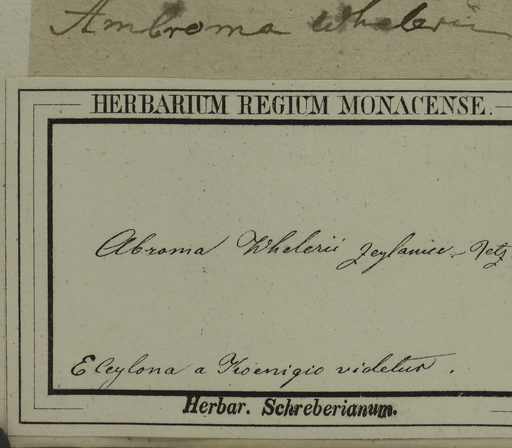 Ambroma Wheleri
HERBARIUM REGIUM MONACENSE.
Abroma Whelerii zeylanica Retz
E Ceylona a Koenigio videtur.
Herbar. Schreberianum.